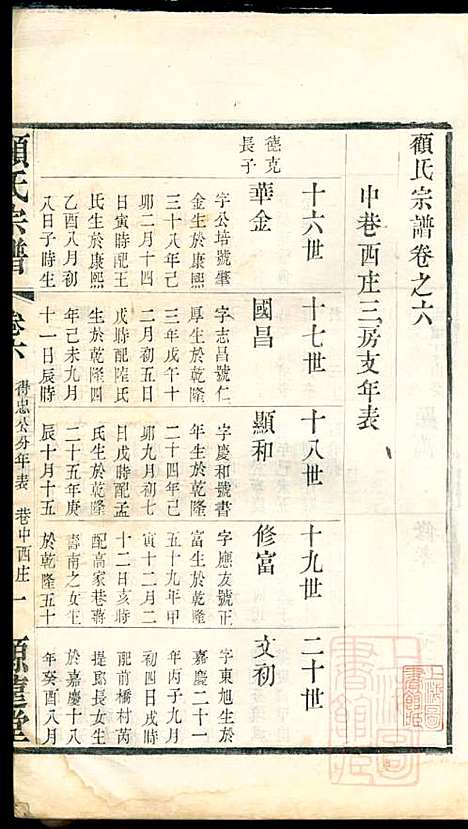 顧氏宗譜卷之六
中巷西庄三房支年表
十六世
十七世
十八世
十九世
二十世
德克
長子
華金
字公培號肇
金生於康熙
三十八年己
卯二月十四
日寅時配王
氏生於康熙
乙酉八月初
八日子時生
國昌
字志昌號仁
厚生於乾隆
三年戊午十
二月初五日
戌時配陸氏
生於乾隆四
年己未九月
十一日辰時
顯和
字慶和號書
年生於乾隆
二十四年己
卯九月初七
日戌時配孟
氏生於乾隆
二十五年庚
辰十月十五
修富
字應友號正
富生於乾隆
五十九年甲
寅十二月二
十二日亥時
配高家巷蔣
壽南之女生
於乾隆五十
文初
字東旭生於
嘉慶二十一
年丙子九月
初四日戌時
配前橋村芮
提郎長女生
於嘉慶十八
年癸酉八月
顧氏宗譜
卷六
得忠公分年表
巷中西庄
一
源蓮堂
上海圖書館藏